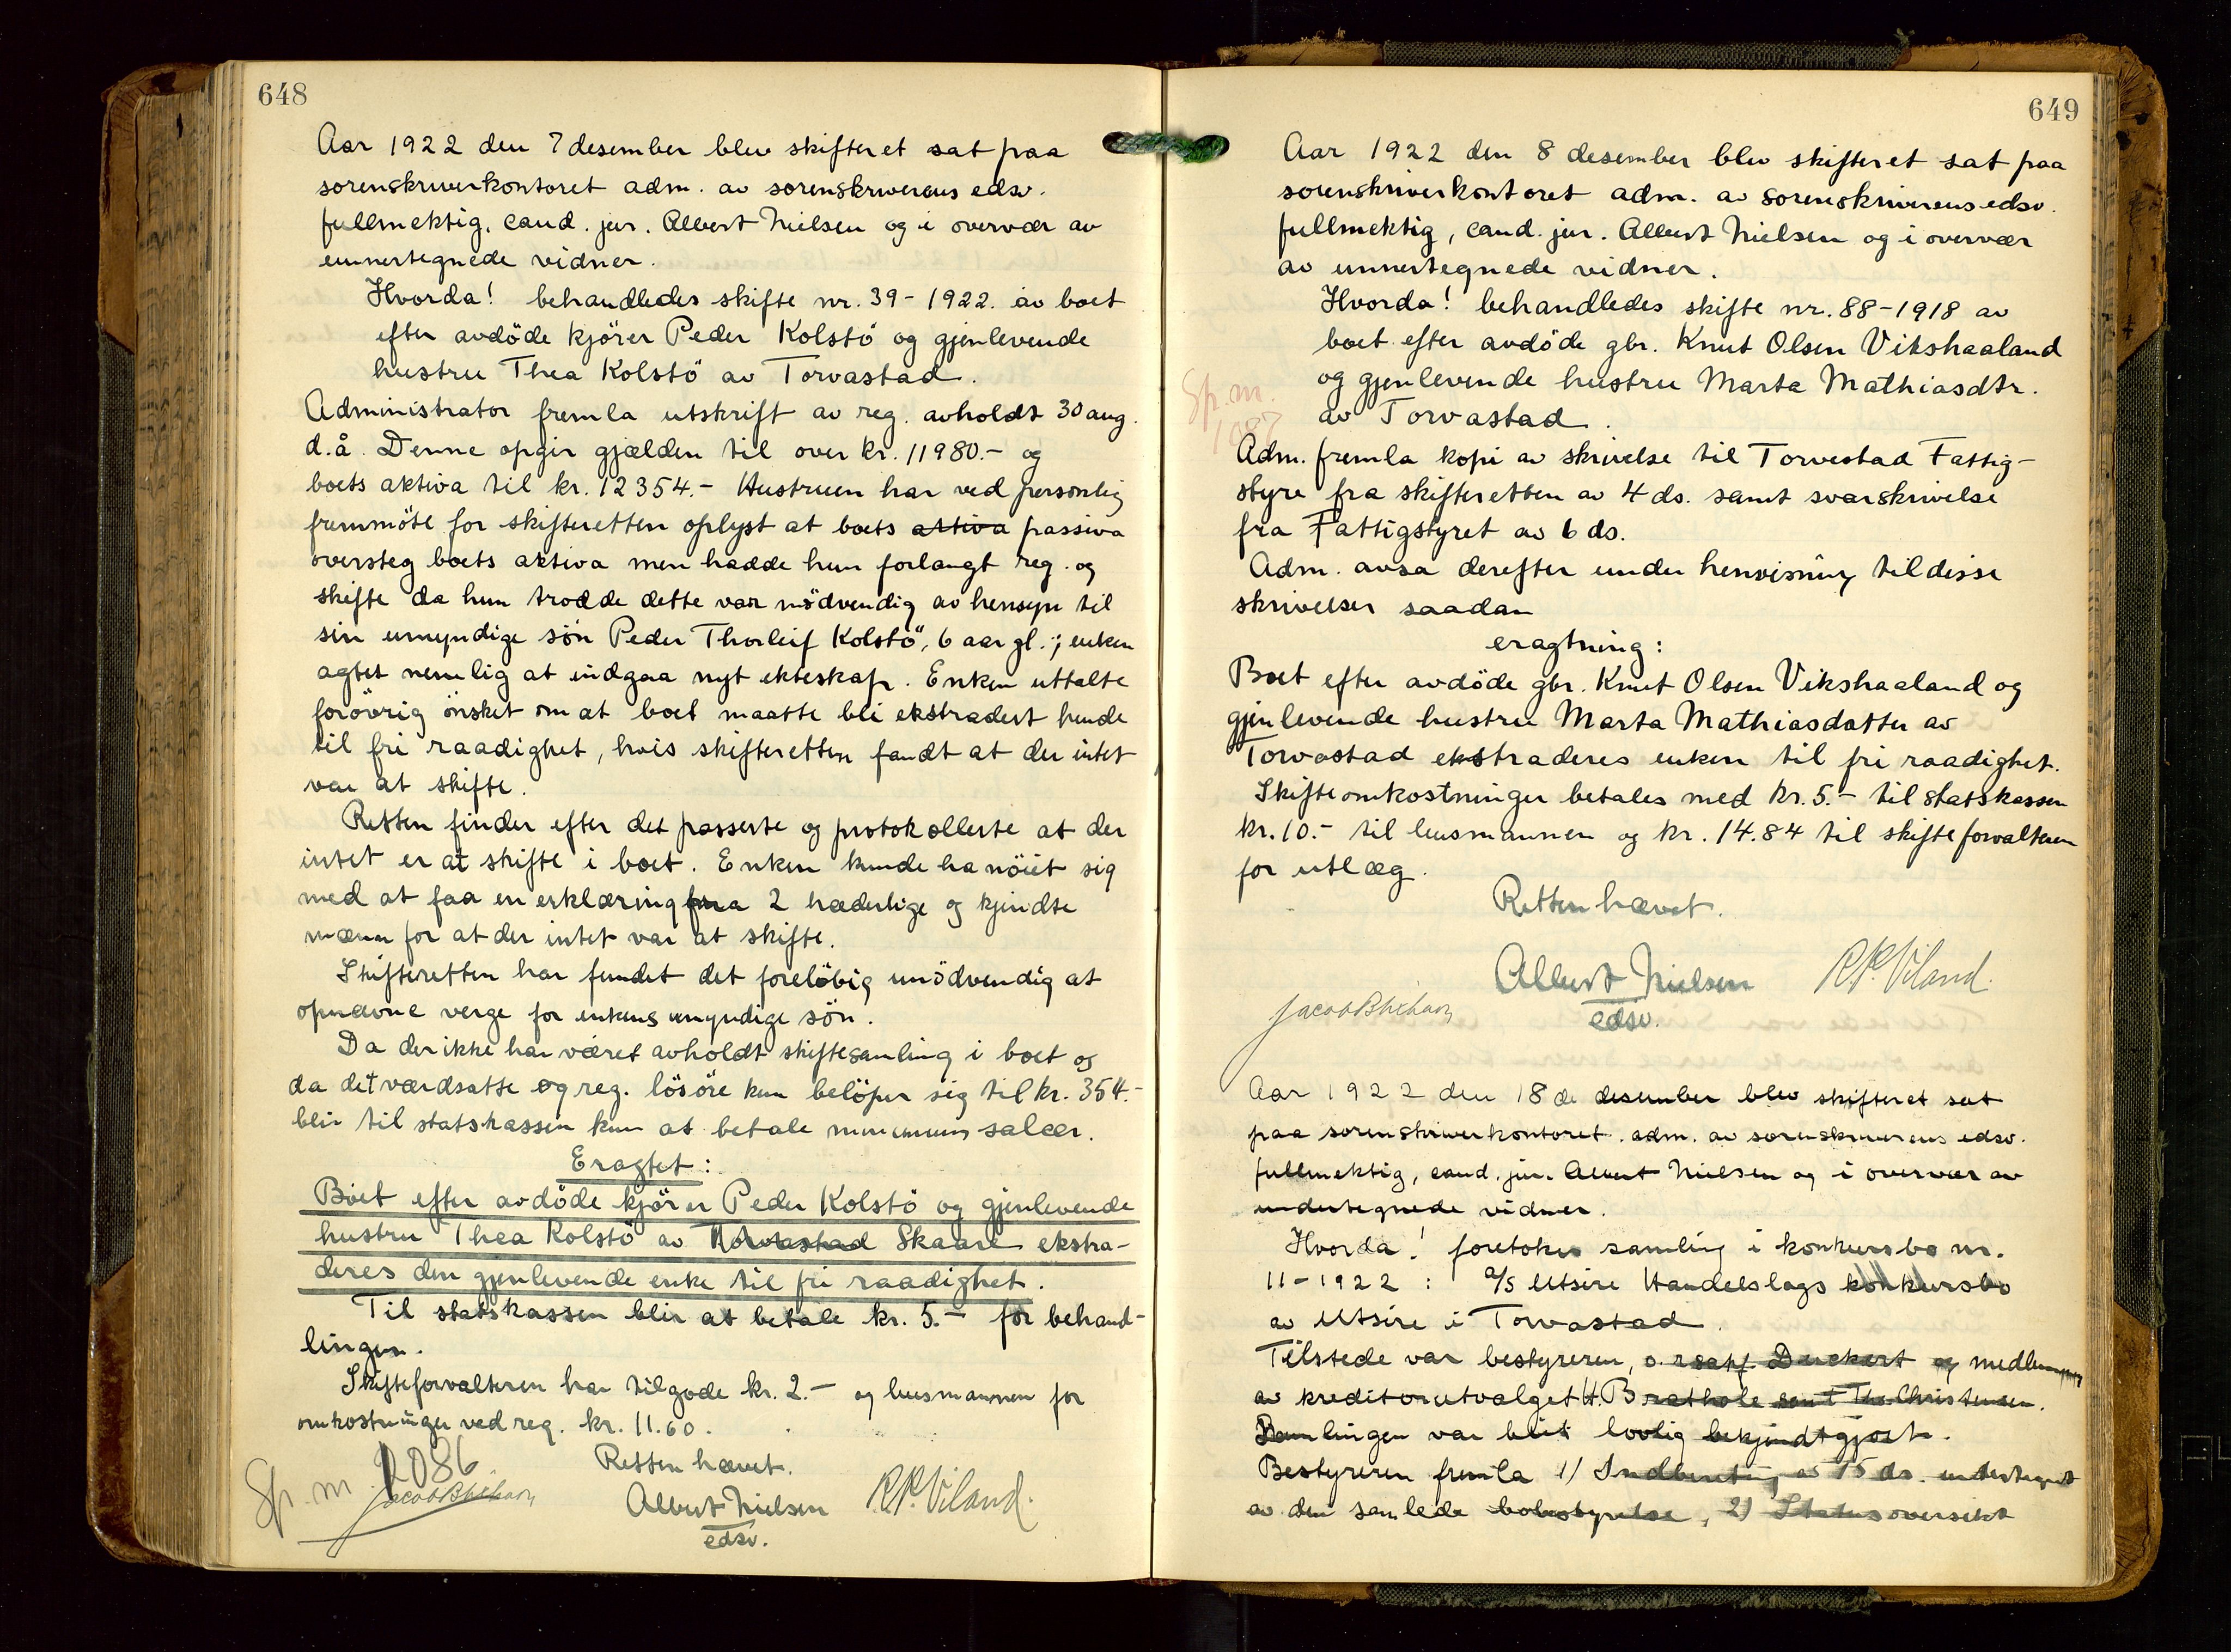 648
Aar 1922 den 7 desember blev skifteret sat paa
sorenskriverkontoret adm. av sorenskriverens edsv.
fullmektig, cand. jur. Albert Nielsen og i overvær av
unnertegnede vidner.
Hvorda! behandledes skifte nr. 39-1922. av boet
efter avdöde kjörer Peder Kolstö og gjenlevende
hustru Thea Kolstö av Torvastad.
Administrator fremla utskrift av reg. avholdt 30 aug.
d.å. Denne opgir gjælden til over kr. 11980.- og
boets aktiva til kr. 12354.- Hustruen har ved personlig
fremmöte for skifteretten oplyst at boets aktiva passiva
oversteg boets aktiva men hadde hun forlangt reg. og
skifte da hun trodde dette var nödvendig av hensyn til
sin umyndige sön Peder Thorleif Kolstö, 6 aar gl.; enken
agtet nemlig at indgaa nyt ekteskap. Enken uttalte
forövrig önsket om at boet maatte bli ekstradert hende
til fri raadighet, hvis skifteretten fandt at der intet
var at skifte.
Retten finder efter det passerte og protokollerte at der
intet er at skifte i boet. Enken kunde ha nöiet sig
med at faa en erklæring fra 2 hæderlige og kjendte
mænn for at der intet var at skifte.
Skifteretten har fundet det forelöbig unödvendig at
opnævne verge for enkens umyndige sön.
Da der ikke har været avholdt skiftesamling i boet og
da det værdsatte og reg. lösöre kun belöper sig til kr. 354.-
blir til statskassen kun at betale minimum salær.
Eragtet:
Boet efter avdöde kjörer Peder Kolstö og gjenlevende
hustru Thea Kolstö av Torvastad Skaare ekstra-
deres den gjenlevende enke til fri raadighet.
Til statskassen blir at betale kr. 5.- for behand-
lingen.
Skifteforvalteren har tilgode kr. 2.- og lensmannen for
omkostninger ved reg. kr. 11.60.
Retten hævet.
Sp. m. 1086
Albert Nielsen R.P. Viland.
edsv.
649
Aar 1922 den 8 desember blev skifteret sat paa
sorenskriverkontoret adm. av sorenskriverens edsv.
fullmektig, cand. jur. Albert Nielsen og i overvær
av unnertegnede vidner.
Hvorda! behandledes skifte nr. 88-1918 av
boet efter avdöde gbr. Knut Olsen Vikshaaland
og gjenlevende hustru Marta Mathiasdtr.
av Torvastad.
Sp. m.
1087
Adm. fremla kopi av skrivelse til Torvestad Fattig-
styre fra skifteretten av 4 ds. samt svarskrivelse
fra Fattigstyret av 6 ds.
Adm. avsa derefter under henvisning til disse
skrivelser saadan
eragtning:
Boet efter avdöde gbr. Knut Olsen Vikshaaland og
gjenlevende hustru Marta Mathiasdatter av
Torvastad ekstraderes enken til fri raadighet.
Skifteomkostninger betales med kr. 5.- til statskassen
kr. 10.- til lensmannen og kr. 14.84 til skifteforvalteren
for utlæg.
Retten hævet.
Albert Nielsen R.P. Viland.
edsv.
Aar 1922 den 18 de desember blev skifteret sat
paa sorenskriverkontoret. adm. av sorenskriverens edsv.
fullmektig, cand. jur. Albert Nielsen og i overvær av
undertegnede vidner.
Hvorda! foretokes samling i konkursbo nr.
11-1922: a/s Utsire Handelslags konkursbo
av Utsire i Torvastad.
Tilstede var bestyreren, o. r sakf. Duckert og medlemmer
av kreditorutvalget H. Brathole samt Ths. Christensen.
Samlingen var blit lovlig bekjendtgjort.
Bestyreren fremla 1) Indberetning av 15 ds. undertegnet
av den samlede bobestyrelse, 2) Statusoversikt